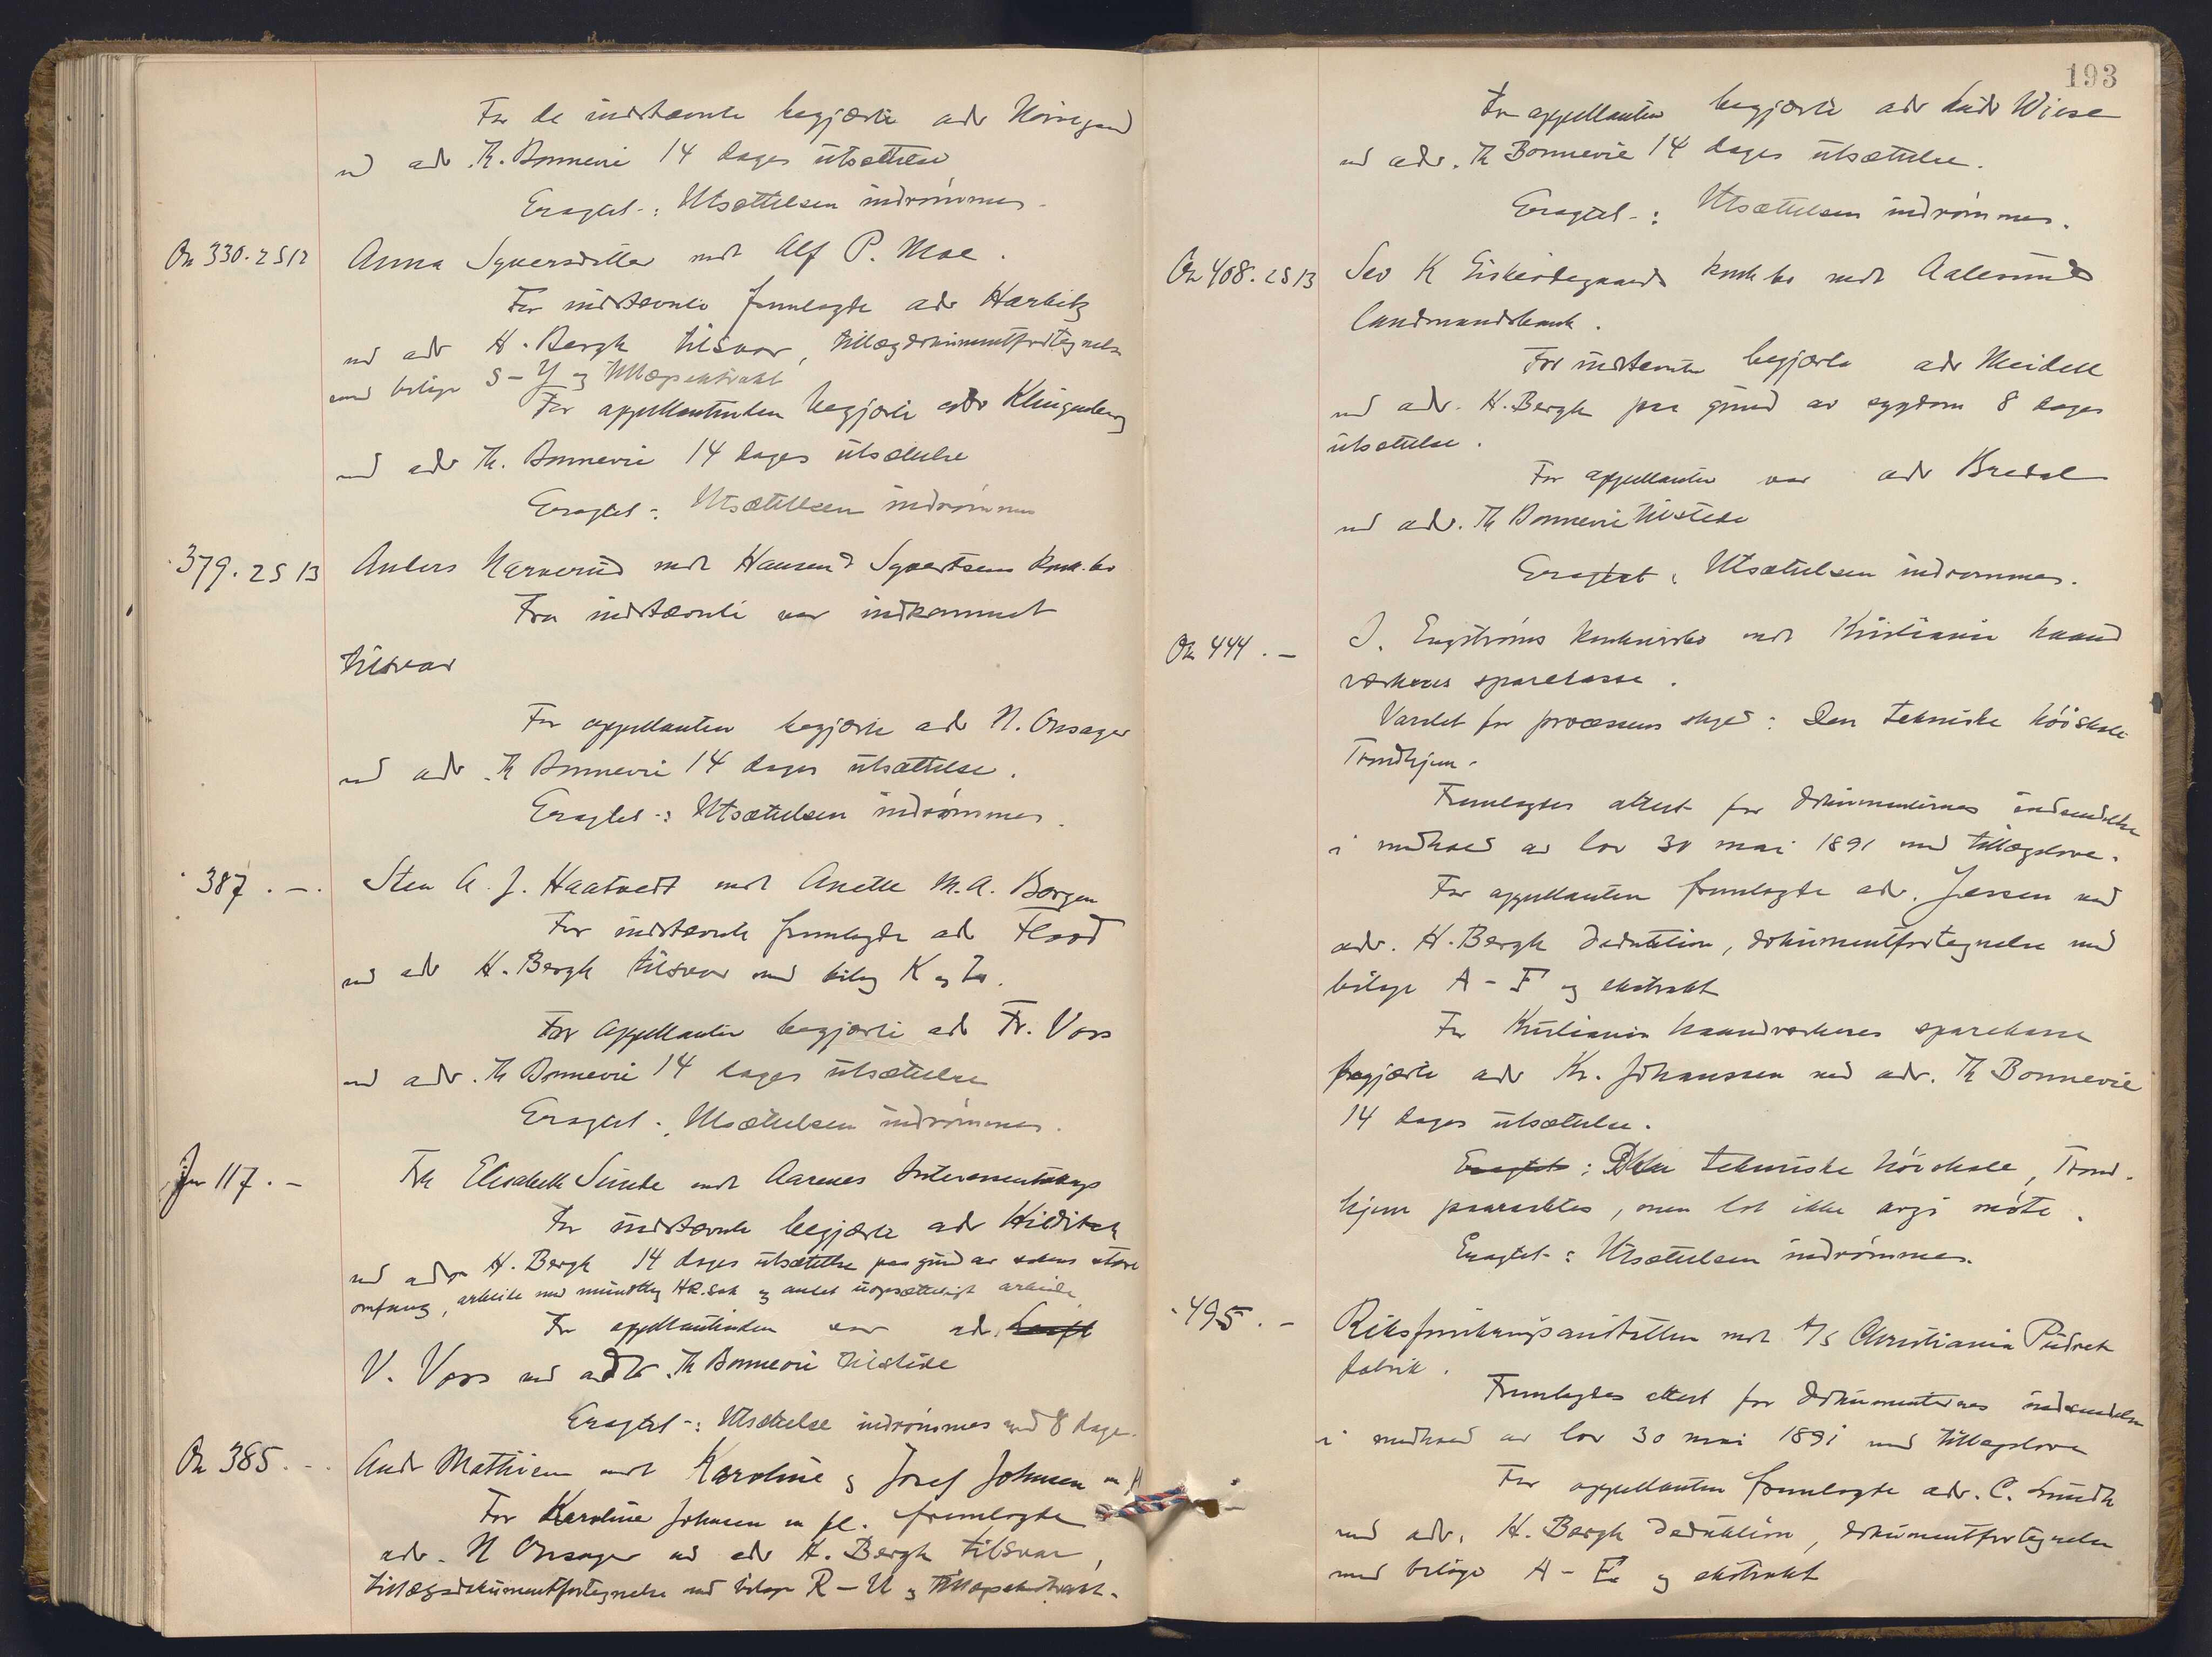 For de indstævnte begjærte adv
ved adv Th. Bonnevie 14 dages utsættelse
Eragtet: Utsættelsen indrømmes.
On 330. 2 S 12
Anna Syversdatter mot Alf P. Moe.
For indstævnte fremlagde adv Harbitz
ved adv H. Bergh tilsvar, tillægsdokumentfortegnelse
med bilage S – Y og tillægsekstrakt
For appellantinden begjærte adv Klingenberg
ved adv Th. Bonnevie 14 dages utsættelse
Eragtet: Utsættelsen indrømmes
379. 2 S 13
Anders Narverud mot Hansen & Syvertsens konk.bo
Fra indstævnte var indkommet
tilsvar
For appellanten begjærte adv N. Onsager
ved adv. Th Bonnevie 14 dages utsættelse.
Eragtet: Utsættelsen indrømmes.
387. –.
Sten A. J. Haatvedt mot Anette M. A. Borgen
For indstævnte fremlagde adv Flood
ved adv H. Bergh tilsvar med bilag K og L.
For appellanten begjærte adv Fr. Voss
ved adv. Th Bonnevie 14 dages utsættelse
Eragtet: Utsættelsen indrømmes.
117. –
Frk Elisabeth Sinde mot Aarenes Interessentskap
For indstævnte begjærte adv Hilditch
ved adv H. Bergh 14 dages utsættelse paa grund av sakens store
omfang, arbeide med mundtlig HR.sak og andet uopsættelig arbeide
For appellantinden var adv.
V. Voss ved adv. Th Bonnevie tilstede
Eragtet: Utsættelse indrømmes med 8 dage.
On 385. –.
Andr Mathisen mot Karoline og Josef Johnsen m fl
For Karoline Johnsen m fl. fremlagde
adv. N Onsager ved adv H. Bergh tilsvar,
tillægsdokumentfortegnelse med bilage R – U og tillægsekstrakt.
193
For appellanten begjærte adv Ludv Wiese
ved adv. Th Bonnevie 14 dages utsættelse.
Eragtet: Utsættelsen indrømmes.
On 408. 2 S 13
Sev K konk bo mot Aalesunds
Landmandsbank.
For indstævnte begjærte adv Meidell
ved adv. H. Bergh paa grund av sygdom 8 dages
utsættelse.
For appellanten var adv Bredal
ved adv. Th Bonnevie tilstede
Eragtet: Utsættelsen indrømmes.
On 444. –
J. Engstrøms konkursbo mot Kristiania haand
værkeres sparekasse.
Varslet for processens skyld: Den tekniske høiskole
Trondhjem.
Fremlagdes attest for dokumenternes indsendelse
i medhold av lov 30 mai 1891 med tillægslove.
For appellanten fremlagde adv. Jessen ved
adv. H. Bergh deduktion, dokumentfortegnelse med
bilage A – F og ekstrakt
For Kristiania haandværkeres sparekasse
begjærte adv Kr. Johanssen ved adv. Th Bonnevie
14 dages utsættelse.
Eragtet: Den tekniske høiskole, Trond-
hjem paaraabtes, men lot ikke avgi møte.
Eragtet: Utsættelsen indrømmes.
495. –
Riksforsikringsanstalten mot A/S Christiania Pudret
fabrik.
Fremlagdes attest for dokumenternes indsendelse
i medhold av lov 30 mai 1891 med tillægslove
For appellanten fremlagde adv. C. Lundh
ved adv. H. Bergh deduktion, dokumentfortegnelse
med bilage A – E og ekstrakt